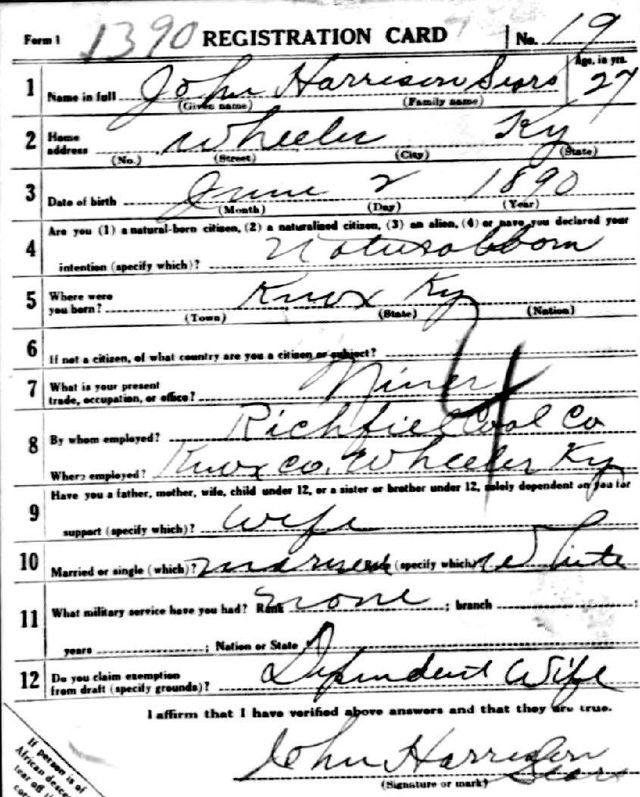 Form 1 1390 REGISTRATION CARD No. 19
1 Name in full John Harrison Sears Age, in yrs. 27
(Given name) (Family name)
2 Home address Wheeler Ky
(No.) (Street) (City) (State)
3 Date of birth June 2 1890
(Month) (Day) (Year)
4 Are you (1) a natural-born citizen, (2) a naturalized citizen, (3) an alien, (4) or have you declared your
intention (specify which)? Natural born
5 Where were you born? Knox Ky
(Town) (State) (Nation)
6 If not a citizen, of what country are you a citizen or subject?
7 What is your present trade, occupation, or office? Miner 4
8 By whom employed? Richfield Coal Co
Where employed? Knox Co. Wheeler Ky
9 Have you a father, mother, wife, child under 12, or a sister or brother under 12, solely dependent on you for
support (specify which)? Wife
10 Married or single (which)? Married Race (specify which) White
11 What military service have you had? Rank None ; branch ;
years ; Nation or State
12 Do you claim exemption from draft (specify grounds)? Dependent Wife
I affirm that I have verified above answers and that they are true.
John Harrison Sears
(Signature or mark)
If person is of
African desce
tear off